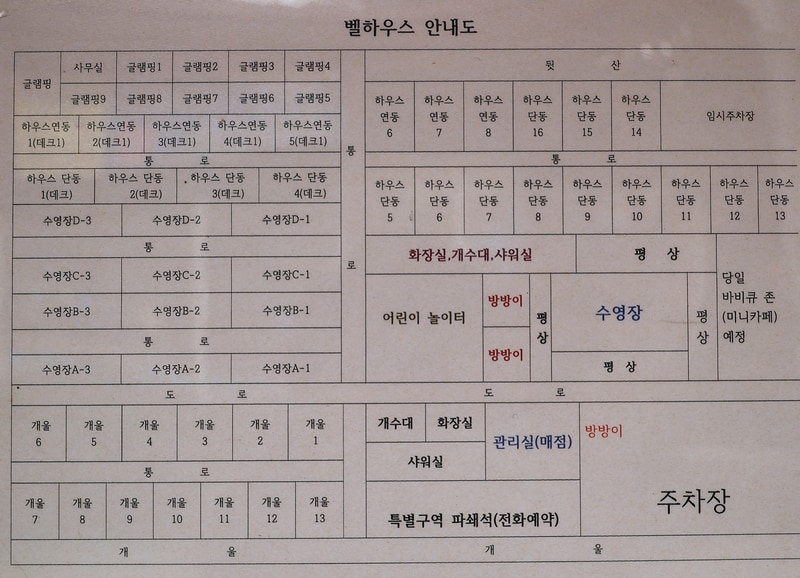 벨하우스 안내도
글램핑
사무실 글램핑1 글램핑2 글램핑3 글램핑4
글램핑9 글램핑8 글램핑7 글램핑6 글램핑5
하우스연동 하우스연동 하우스연동 하우스연동 하우스연동
1(데크1) 2(데크1) 3(데크1) 4(데크1) 5(데크1)
통 로
하우스 단동 하우스 단동 하우스 단동 하우스 단동
1(데크) 2(데크) 3(데크) 4(데크)
수영장D-3 수영장D-2 수영장D-1
통 로
수영장C-3 수영장C-2 수영장C-1
수영장B-3 수영장B-2 수영장B-1
통 로
수영장A-3 수영장A-2 수영장A-1
통
로
뒷 산
하우스 하우스 하우스 하우스 하우스 하우스
연동 연동 연동 단동 단동 단동 임시주차장
6 7 8 16 15 14
통 로
하우스 하우스 하우스 하우스 하우스 하우스 하우스 하우스 하우스
단동 단동 단동 단동 단동 단동 단동 단동 단동
5 6 7 8 9 10 11 12 13
화장실,개수대,샤워실 평 상
어린이 놀이터
방방이
방방이
평
상
수영장
평 상
평
상
당일
바비큐 존
(미니카페)
예정
도 로 도 로
개울 개울 개울 개울 개울 개울
6 5 4 3 2 1
통 로
개울 개울 개울 개울 개울 개울 개울
7 8 9 10 11 12 13
개수대 화장실
샤워실
관리실(매점)
방방이
주차장
특별구역 파쇄석(전화예약)
개 울 개 울